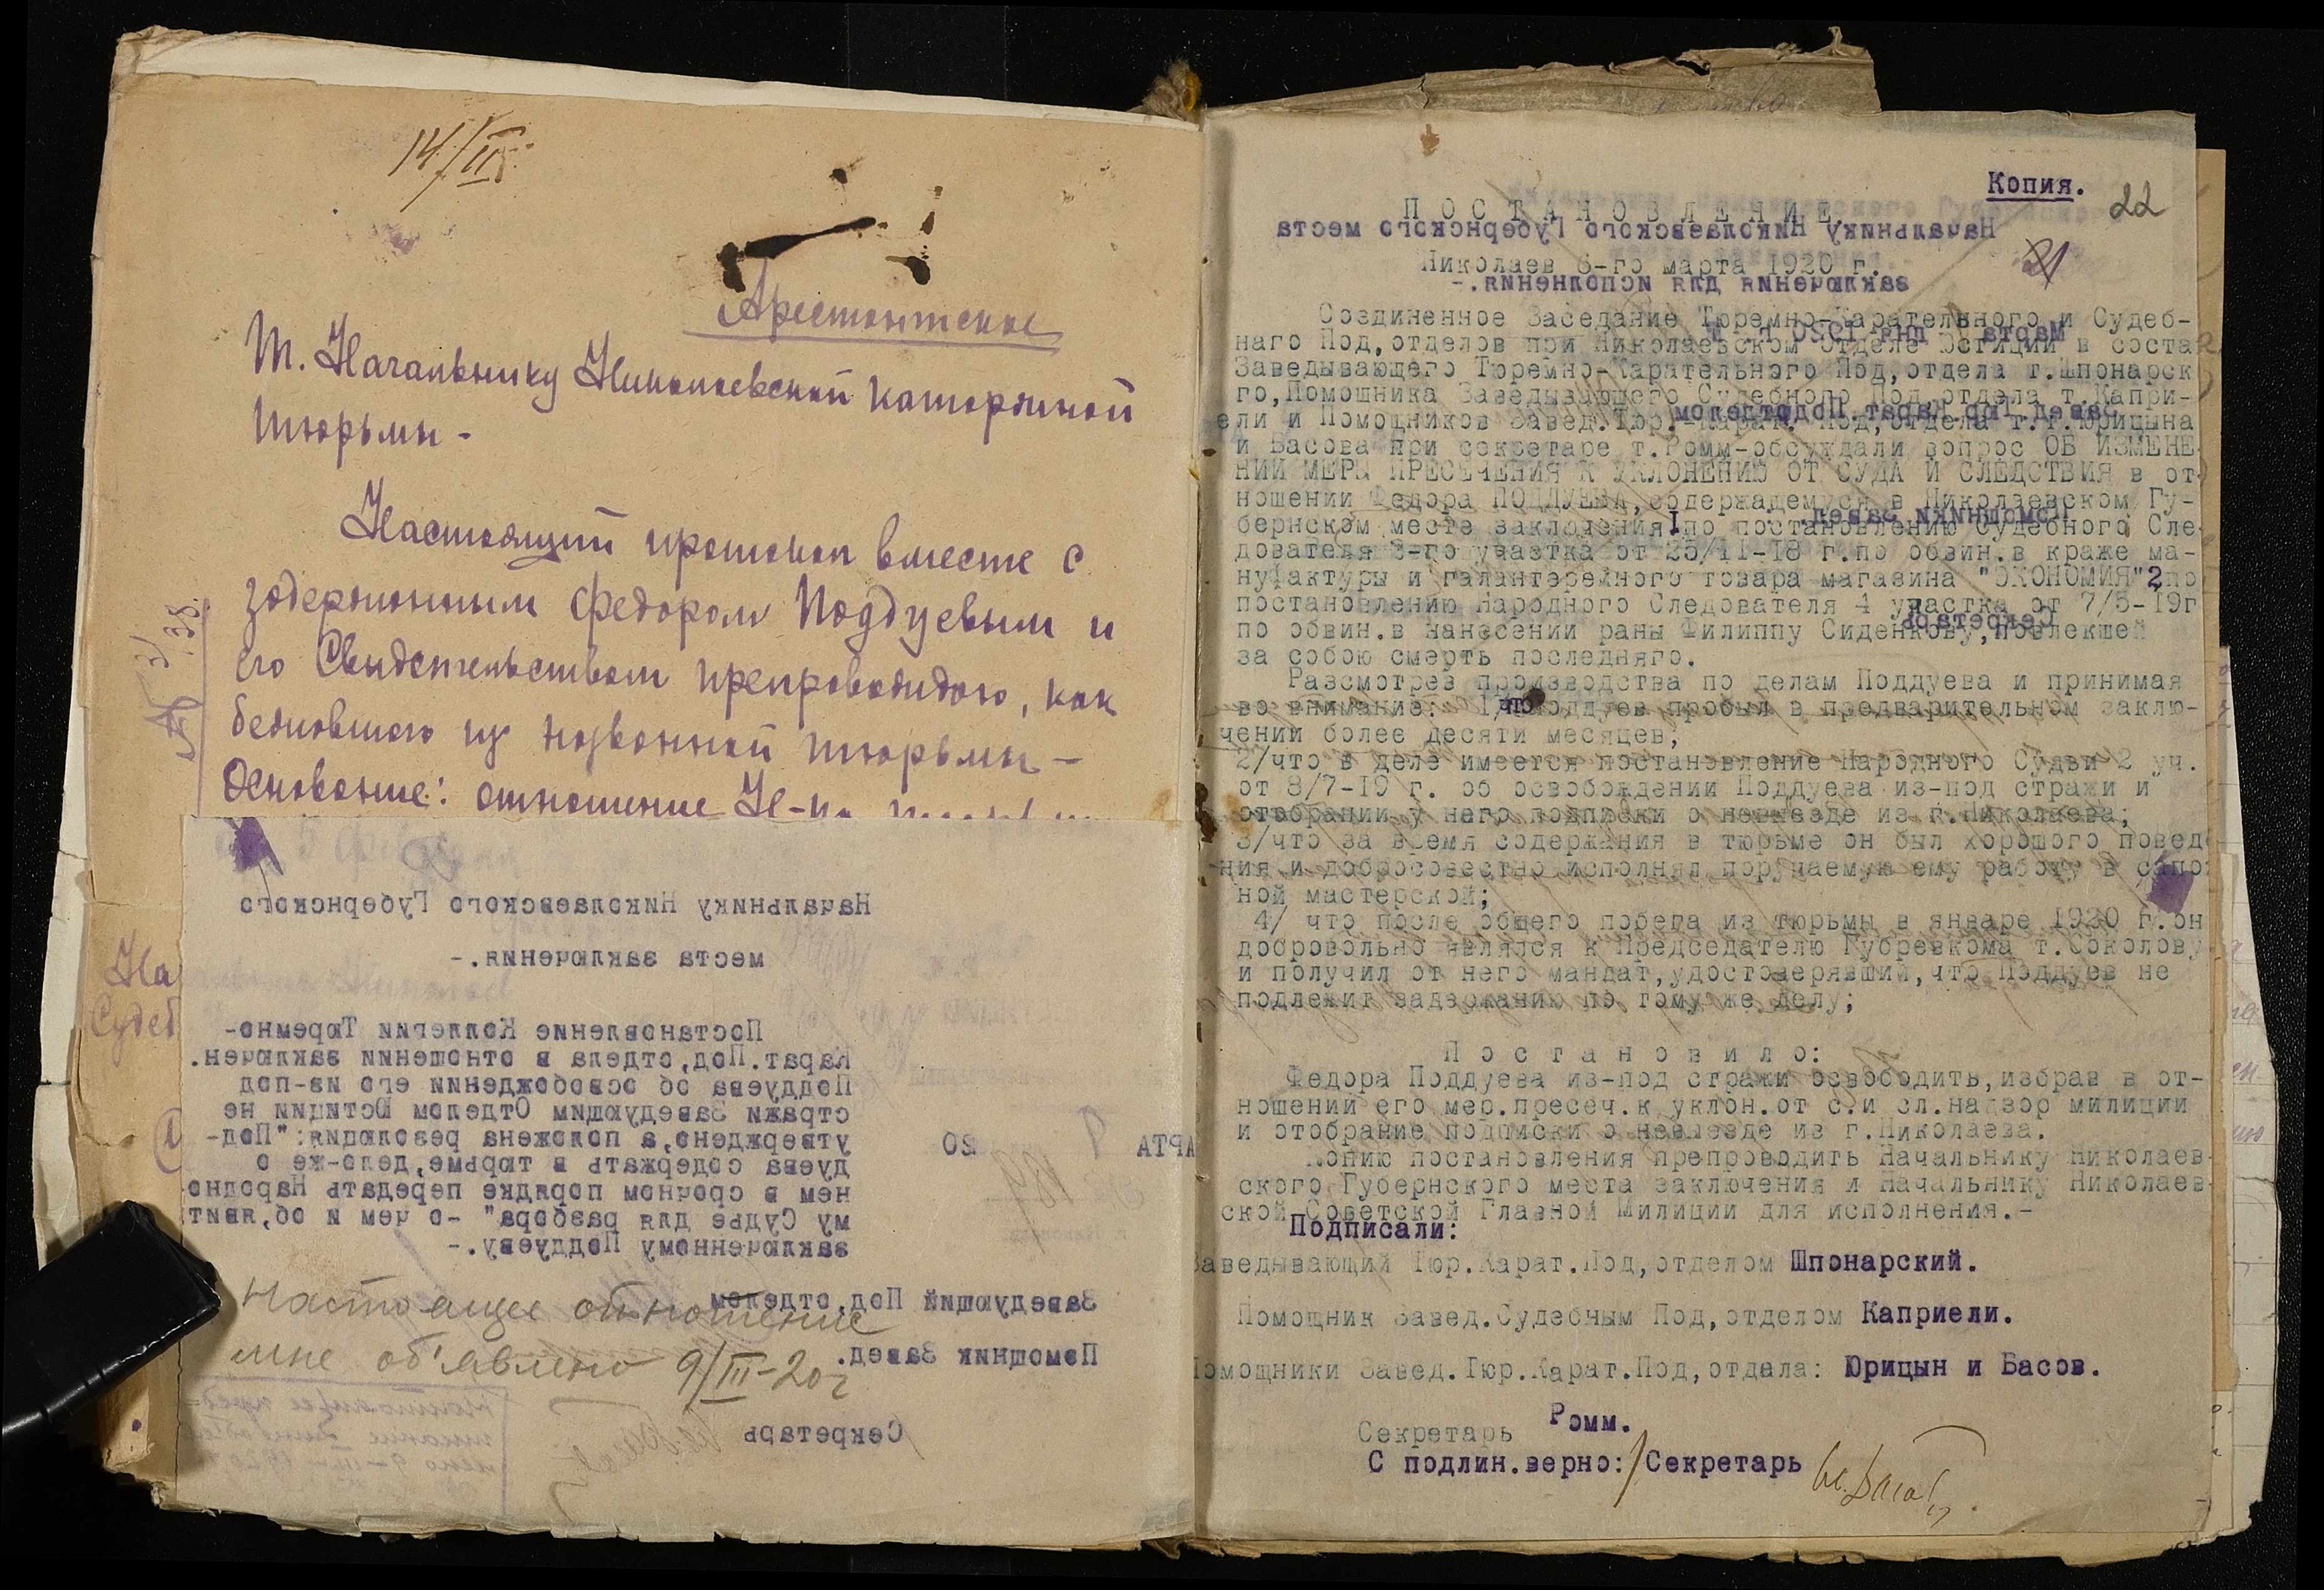 14/III
Арестантское
Т. Начальнику Николаевской каторжной
тюрьмы -
Настоящий протокол вместе с
задержанным Федором Поддуевым и
его Свидетельством препровождаю, как
бежавшаго из названной тюрьмы -
Основание: отношение Н-ка
На
Судеб
Начальнику Николаевского Губернского
места заключения.-
Постановление Коллегии Тюремно-
Карат.Под,отдела в отношении заключен.
Поддуева об освобождении его из-под
стражи Заведующим Отделом Юстиции не
утверждено,а положена резолюция: "Под-
дуева содержать в тюрьме,дело-же о
нем в срочном порядке передать Народно-
му Судье для разбора" -о чем и об,явит
заключенному Поддуеву.-
АРТА 9 20
189
Заведующий Под,отделом
Помощник Завед.
Секретарь
Настоящее отношение
мне об'явлено 9/III-20г
Копия.
22
21
ПОСТАНОВЛЕНИЕ.
Начальнику Николаевского Губернского места
Николаев 6-го марта 1920 г.
заключения для исполнения.-
Соединенное Заседание Тюремно-Карательного и Судеб-
наго Под,отделов при Николаевском Отделе Юстиции в соста
Заведывающего Тюремно-Карательного Под,отдела т.Шпонарск
го,Помошника Заведывающего Судебного Под,отдела т.Капри-
ели и Помощников Завед.Тюр.-Карат. Под,отдела т.т.Юрицына
и Басова при секретаре т.Ромм-обсуждали вопрос ОБ ИЗМЕНЕ
НИИ МЕРЫ ПРЕСЕЧЕНИЯ К УКЛОНЕНИЮ ОТ СУДА И СЛЕДСТВИЯ в от
ношении Федора ПОДДУЕВА,содержащемуся в Николаевском Гу-
бернском месте заключения 1 по постановлению Судебного Сле
дователя 3-го участка от 25/11-18 г.по обвин.в краже ма-
нуфактуры и галантерейного товара магазина "ЭКОНОМИЯ"2 по
постановлению Народного Следователя 4 участка от 7/5-19г
по обвин.в нанесении раны Филиппу Сиденкову,повлекшей
за собою смерть последняго.
Разсмотрев производства по делам Поддуева и принимая
во внимание: 1/что Поддуев пробыл в предварительном заклю-
чении более десяти месяцев;
2/что в деле имеется постановление Народного Судьи 2 уч.
от 8/7-19 г. об освобождении Поддуева из-под стражи и
отобрании у него подписки о невыезде из г.Николаева;
3/что за время содержания в тюрьме он был хорошого повед
ния и добросовестно исполнял поручаемую ему работу в сапо
ной мастерской;
4/ что после общего побега из тюрьмы в январе 1920 г.он
добровольно явился к Председателю Губревкома т.Соколову
и получил от него мандат,удостоверявший,что Поддуев не
подлежит задержанию по тому же делу;
Постановило:
Федора Поддуева из-под стражи освободить,избрав в от-
ношении его мер.пресеч.к уклон.от с.и сл.надзор милиции
и отобрание подписки о невыезде из г.Николаева.
Копию постановления препроводить Начальнику Николаев-
ского Губернского места заключения и Начальнику Николаев-
ской Советской Главной Милиции для исполнения.-
Подписали:
Заведывающий Тюр.Карат.Под,отделом Шпонарский.
Помощник Завед.Судебным Под,отделом Каприели.
Помощники Завед.Тюр.Карат.Под,отдела: Юрицын и Басов.
Секретарь Ромм.
С подлин.верно:/Секретарь